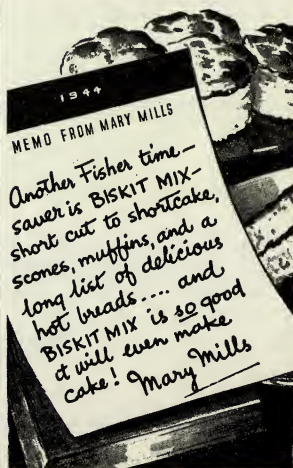 1944
MEMO FROM MARY MILLS
Another Fisher time-
saver is BISKIT MIX-
short cut to shortcake,
scones, muffins, and a
long list of delicious
hot breads.... and
BISKIT MIX is so good
it will even make
cake! Mary Mills